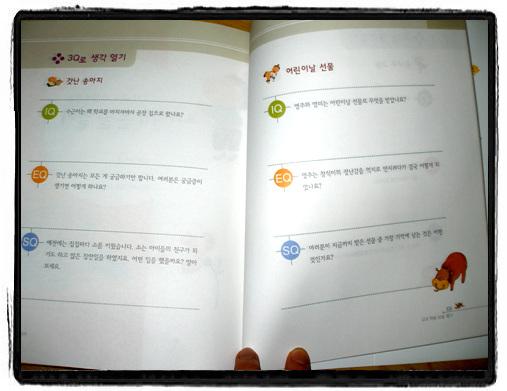 3Q로 생각 열기
갓난 송아지
IQ
수근이는 왜 학교를 마치자마자 곧장 집으로 왔나요?
EQ
갓난 송아지는 모든 게 궁금하기만 합니다. 여러분은 궁금증이
생기면 어떻게 하나요?
SQ
예전에는 집집마다 소를 키웠습니다. 소는 아이들의 친구가 되
기도 하고 많은 집안일을 하였지요. 어떤 일을 했을까요? 말해
보세요.
어린이날 선물
IQ
영주와 영미는 어린이날 선물로 무엇을 받았나요?
EQ
영주는 정식이의 장난감을 억지로 만지려다가 결국 어떻게 되
었나요?
SQ
여러분이 지금까지 받은 선물 중 가장 기억에 남는 것은 어떤
것인가요?